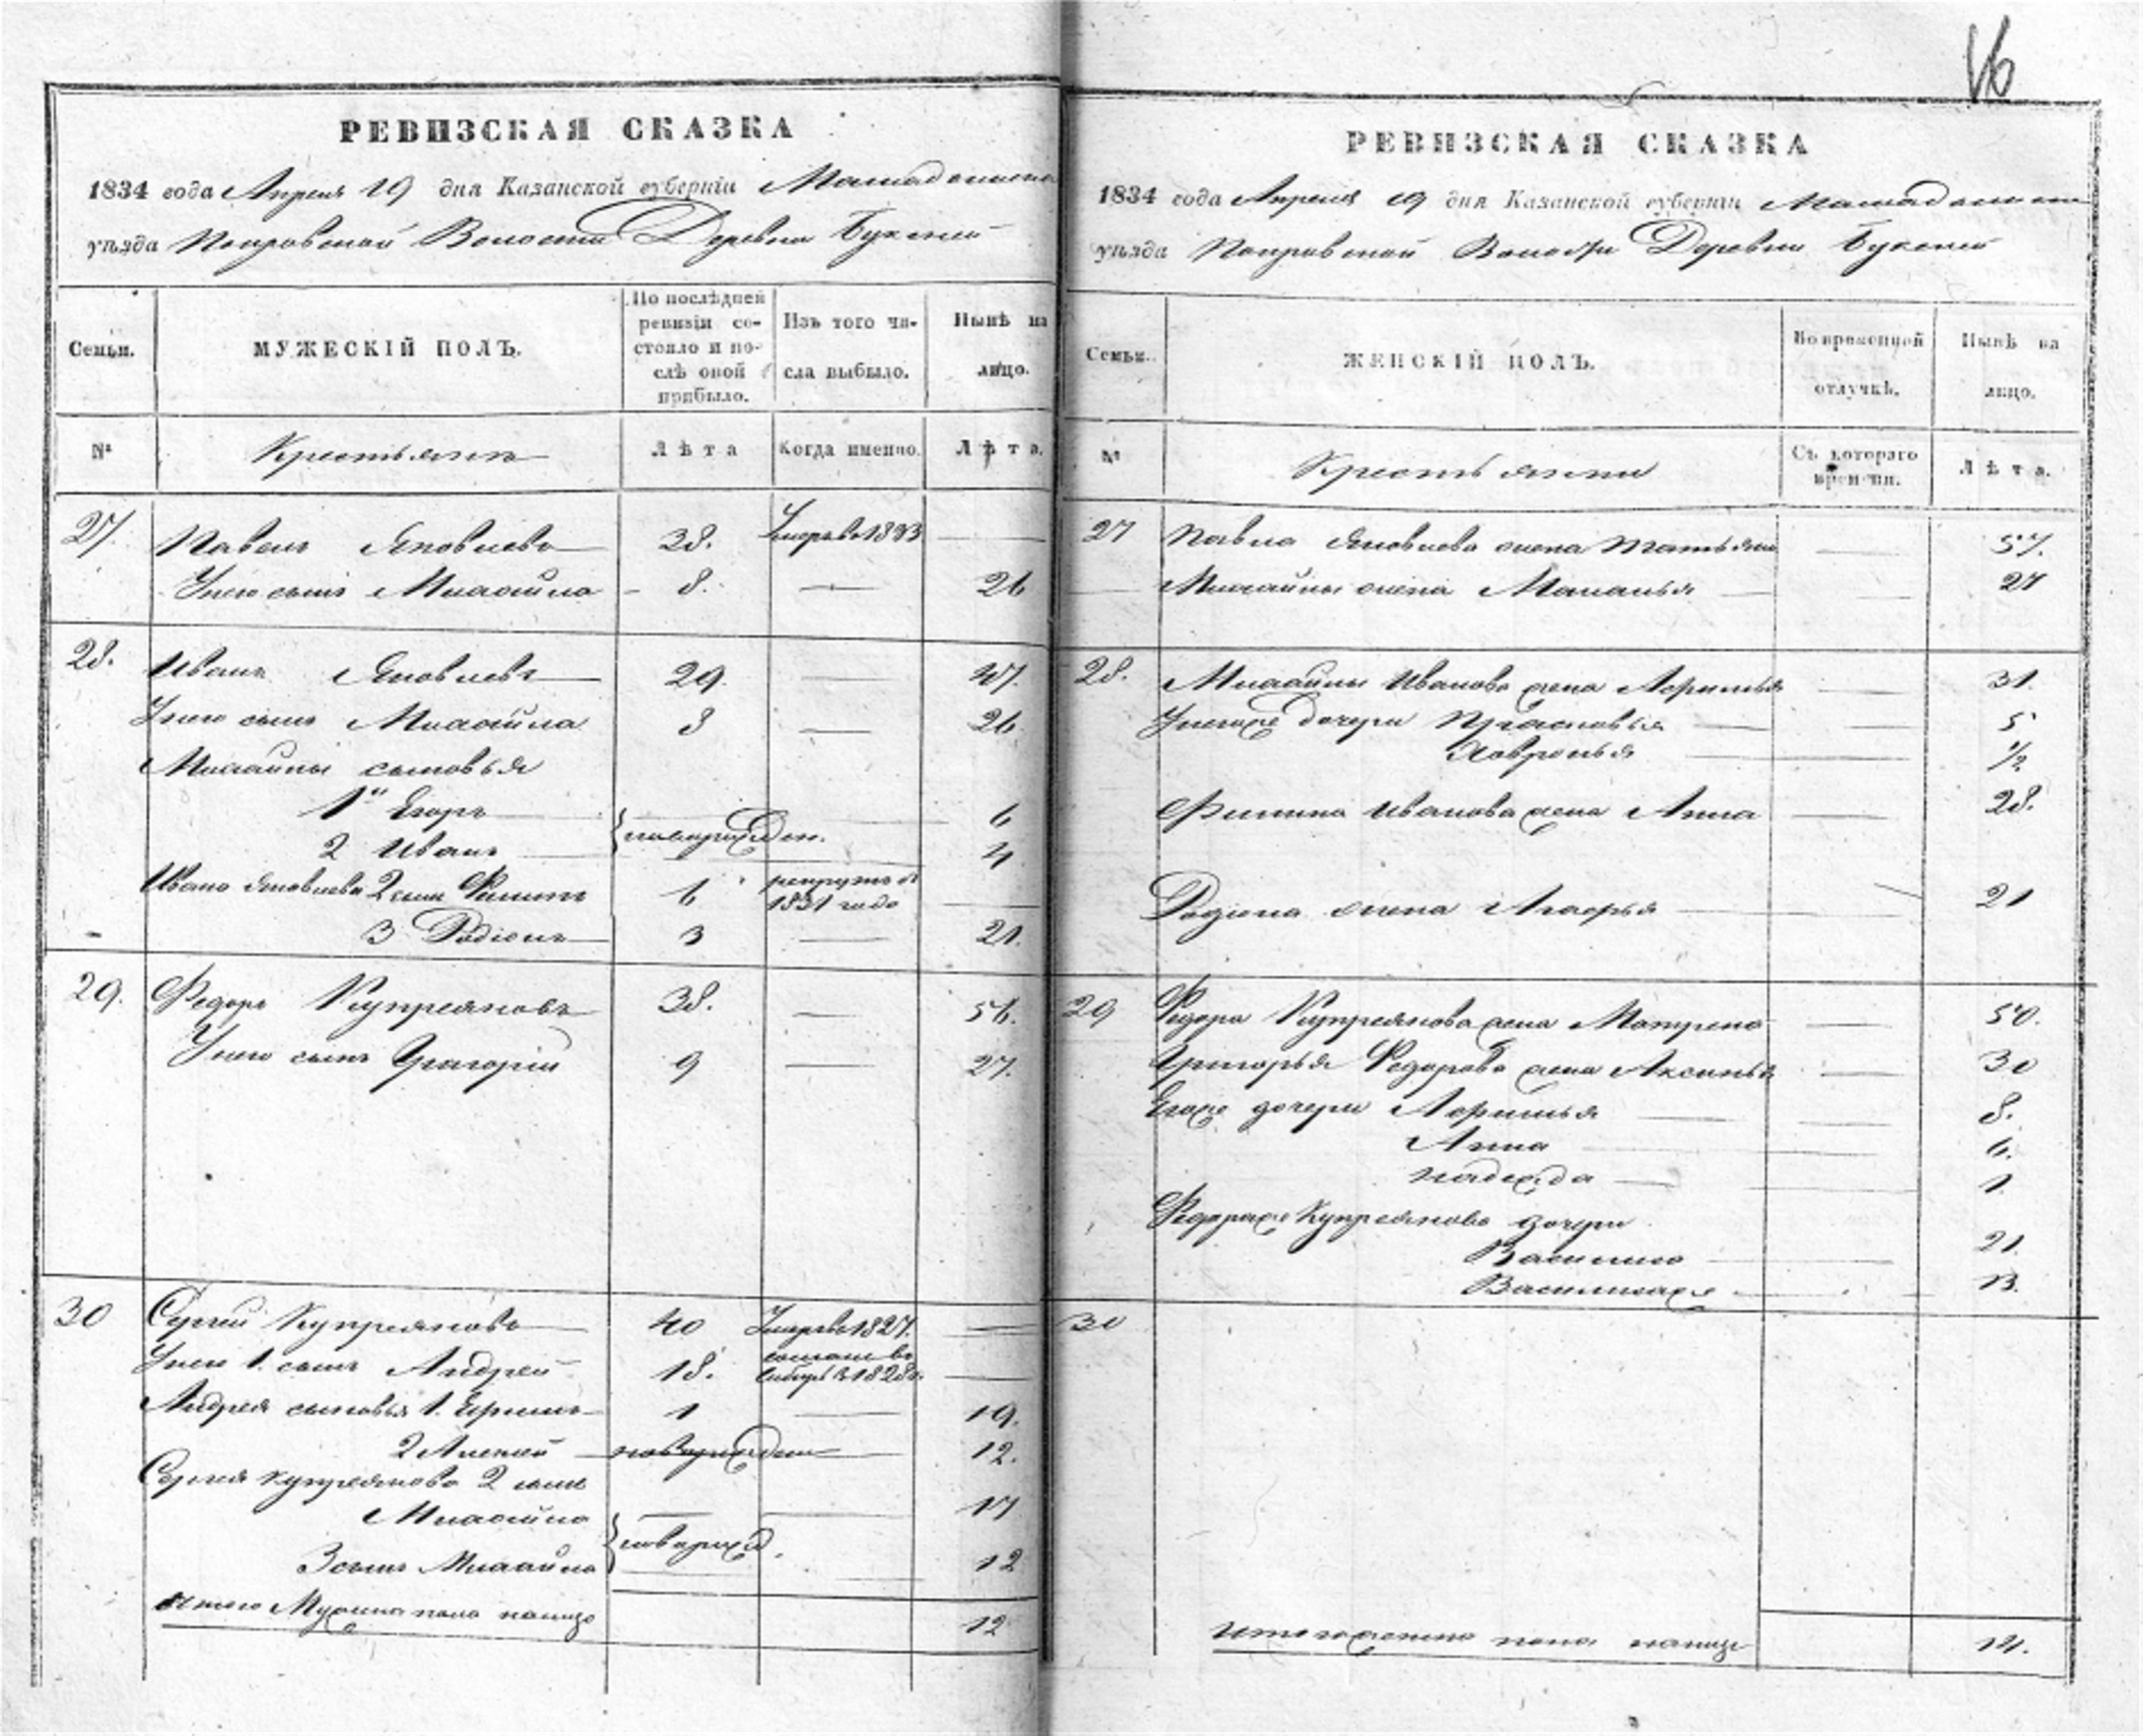 РЕВИЗСКАЯ СКАЗКА
1834 года Апреля 19 дня Казанской губерніи Мамадышскаго
уѣзда Покровской Волости Деревни Букеней
Семьи.
МУЖЕСКІЙ ПОЛЪ.
По послѣдней ревизіи состояло и послѣ оной прибыло.
Изъ того числа выбыло.
Нынѣ на лицо.
№
Крестьяне
Лѣта
Когда именно.
Лѣта.
27. Павелъ Яковлевъ 38. Умеръ в 1833
У него сынъ Михайла 8. 26
28. Иванъ Яковлевъ 29 47.
У него сынъ Михайла 8 26
Михайлы сыновья
1й Егоръ 6
2 Иванъ новорожден. 4
Ивана Яковлева 2 сынъ Филипъ 6 рекрутъ в 1831 года
3 Родіонъ 3 21.
29. Федоръ Купреяновъ 38. 56.
У него сынъ Григорій 9 27.
30 Сергей Купреяновъ 40 Умеръ в 1827.
У него 1. сынъ Андрей 18. сосланъ в Сибирь в 1828 г.
Андрея сыновья 1. Ефимъ 1 19.
2 Алексей новорожден 12.
Сергея Купреянова 2 сынъ
Михайла 17
3 сынъ Михайла новорожд. 12
Итого Мужеска пола налицо 12
РЕВИЗСКАЯ СКАЗКА
1834 года Апреля 19 дня Казанской губерніи Мамадышскаго
уѣзда Покровской Волости Деревни Букеней
Семьи.
ЖЕНСКІЙ ПОЛЪ.
Во временной отлучкѣ.
Нынѣ на лицо.
№
Крестьянки
Съ котораго времени.
Лѣта.
27 Павла Яковлева жена Татьяна 57.
Михайлы жена Маланья 27
28. Михайлы Иванова жена Афимья 31.
У нихже дочери Прасковья 5
Хавронья 1/2
Филипа Иванова жена Анна 28.
Родіона жена Агафья 21
29 Федора Купреянова жена Матрена 50.
Григорья Федорова жена Аксинья 30
Егоже дочери Афимья 8.
Анна 6.
Надежда 1
Федораже Купреянова дочери
Василиса 21
Василисаже 13.
30
Итого женска пола налицо 14.